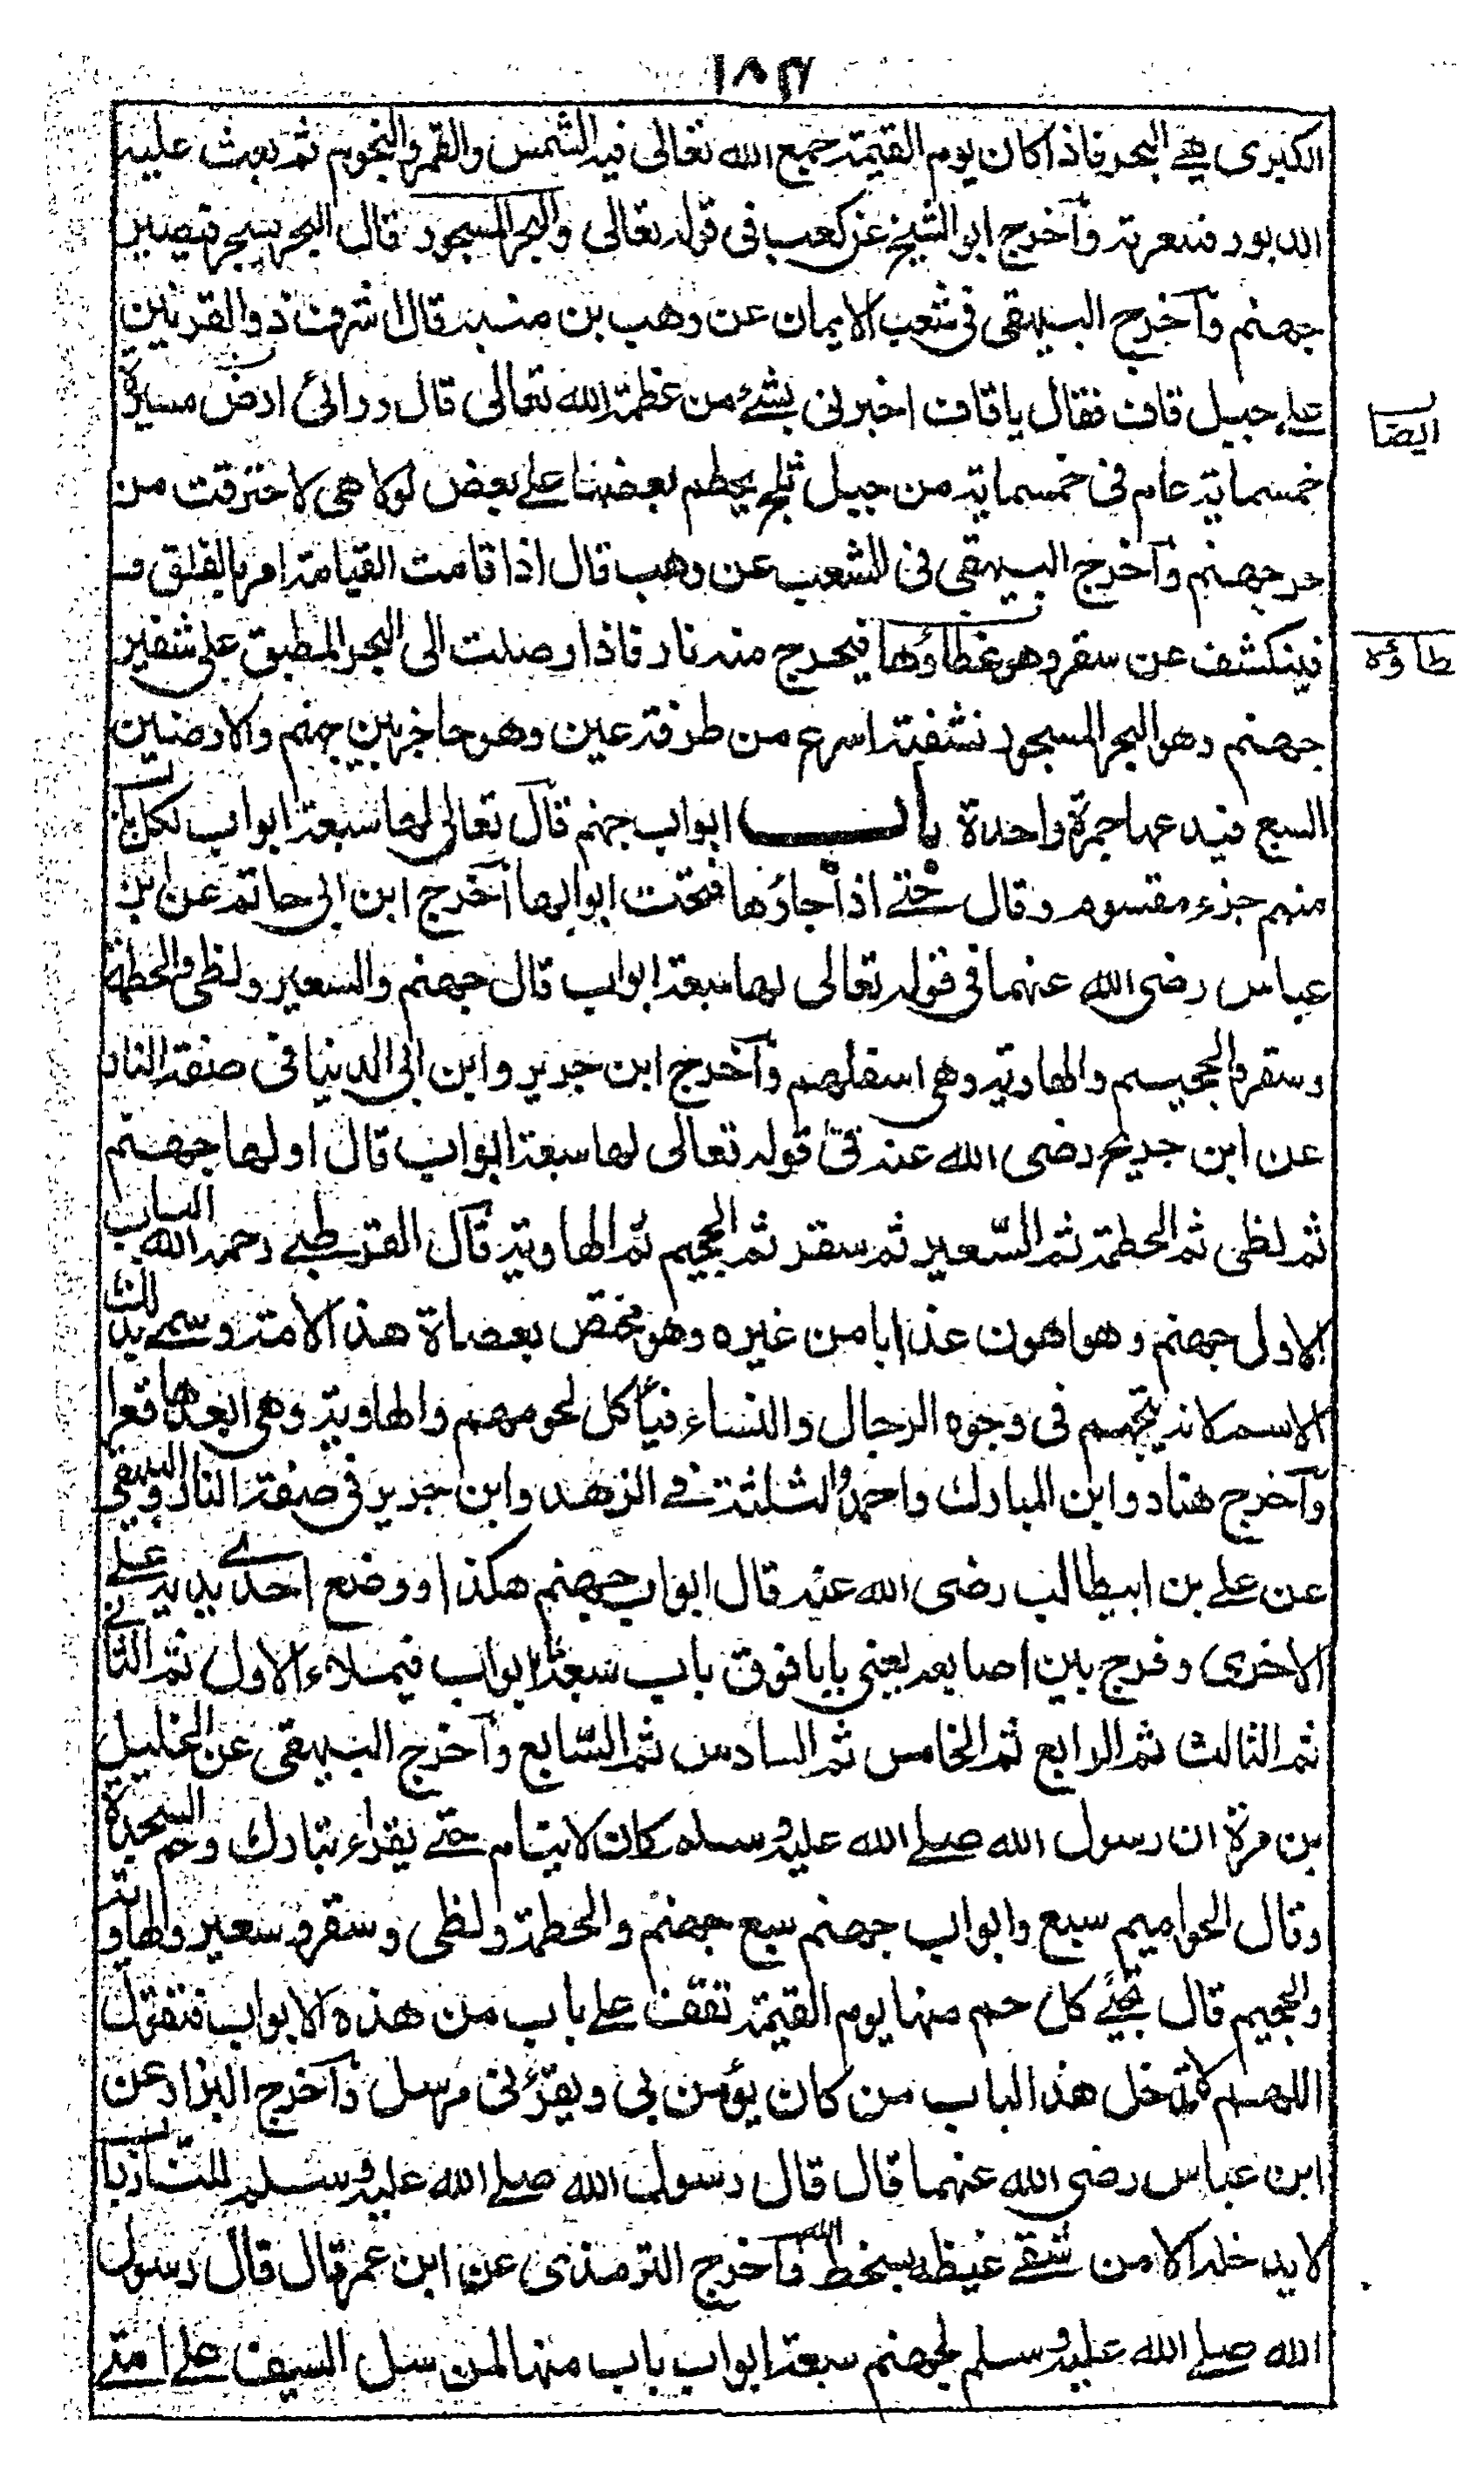 ١٨٣
الكبرى هي البحر فاذا كان يوم القيمة جمع الله تعالى فيه الشمس والقمر والنجوم ثم بعث عليه
الدبور فتسعر به وآخرج ابو الشيخ عن كعب فى قوله تعالى والبحر المسجور قال البحر يسجر فيصير
جهنم وآخرج البيهقى فى شعب الايمان عن وهب بن منبه قال اشرف ذو القرنين
على جبل قاف فقال يا قاف اخبرنى بشئ من عظمة الله تعالى قال ورائى ارض مسيرة
ايضا
خمسماية عام فى خمسماية من جبل ثلج يحطم بعضها على بعض لولا هى لاحترقت من
حر جهنم وآخرج البيهقى فى الشعب عن وهب قال اذا قامت القيامة امر بالفلق
فينكشف عن سقر وهو غطاؤها فيخرج منه نار فاذا وصلت الى البحر المطبق على شفير
طاؤه
جهنم وهو البحر المسجور نشفته اسرع من طرفة عين وهو حاجز بين جهنم والارضين
السبع فيدعها جمرة واحدة باب ابواب جهنم قال تعالى لها سبعة ابواب لكل باب
منهم جزء مقسوم وقال حتى اذا جاؤها فتحت ابوابها آخرج ابن ابى حاتم عن ابن
عباس رضى الله عنهما فى قوله تعالى لها سبعة ابواب قال جهنم والسعير ولظى والحطمة
وسقر والجحيم والهاوية وهى اسفلهم وآخرج ابن جرير وابن ابى الدنيا فى صفة النار
عن ابن جريج رضى الله عنه فى قوله تعالى لها سبعة ابواب قال اولها جهنم
ثم لظى ثم الحطمة ثم السّعير ثم سقر ثم الجحيم ثم الهاوية قال القرطبى رحمه الله الباب
الاول جهنم وهو اهون عذابا من غيره وهو مختص بعصاة هذا الامة وسمى بذلك
الاسم لانه يتجهم فى وجوه الرجال والنساء فيأكل لحومهم والهاوية وهى ابعدها قعرا
وآخرج هناد وابن المبارك واحمد الثلثة فى الزهد وابن جرير فى صفة النار والبيهقى
عن على بن ابيطالب رضى الله عنه قال ابواب جهنم هكذا ووضع احدى يديه على
الاخرى وفرج بين اصابعه يعنى بابا فوق باب سبعة ابواب فيملاء الاول ثم الثانى
ثم الثالث ثم الرابع ثم الخامس ثم السادس ثم السّابع وآخرج البيهقى عن الخليل
بن مرة ان رسول الله صلى الله عليه وسلم كان لا ينام حتى يقراء تبارك وحم السجدة
وقال الحواميم سبع وابواب جهنم سبع جهنم والحطمة ولظى وسقر وسعير والهاوية
والجحيم قال تجئ كل حم منها يوم القيمة تقف على باب من هذه الابواب فتقول
اللهم لا تدخل هذا الباب من كان يؤمن بى ويقرئنى مرسل وآخرج البزار عن
ابن عباس رضى الله عنهما قال قال رسول الله صلى الله عليه وسلم للنار باب
لا يدخله الا من شفى غيظه بسخط الله وآخرج الترمذى عن ابن عمر قال قال رسول
الله صلى الله عليه وسلم لجهنم سبعة ابواب باب منها لمن سل السيف على امتى